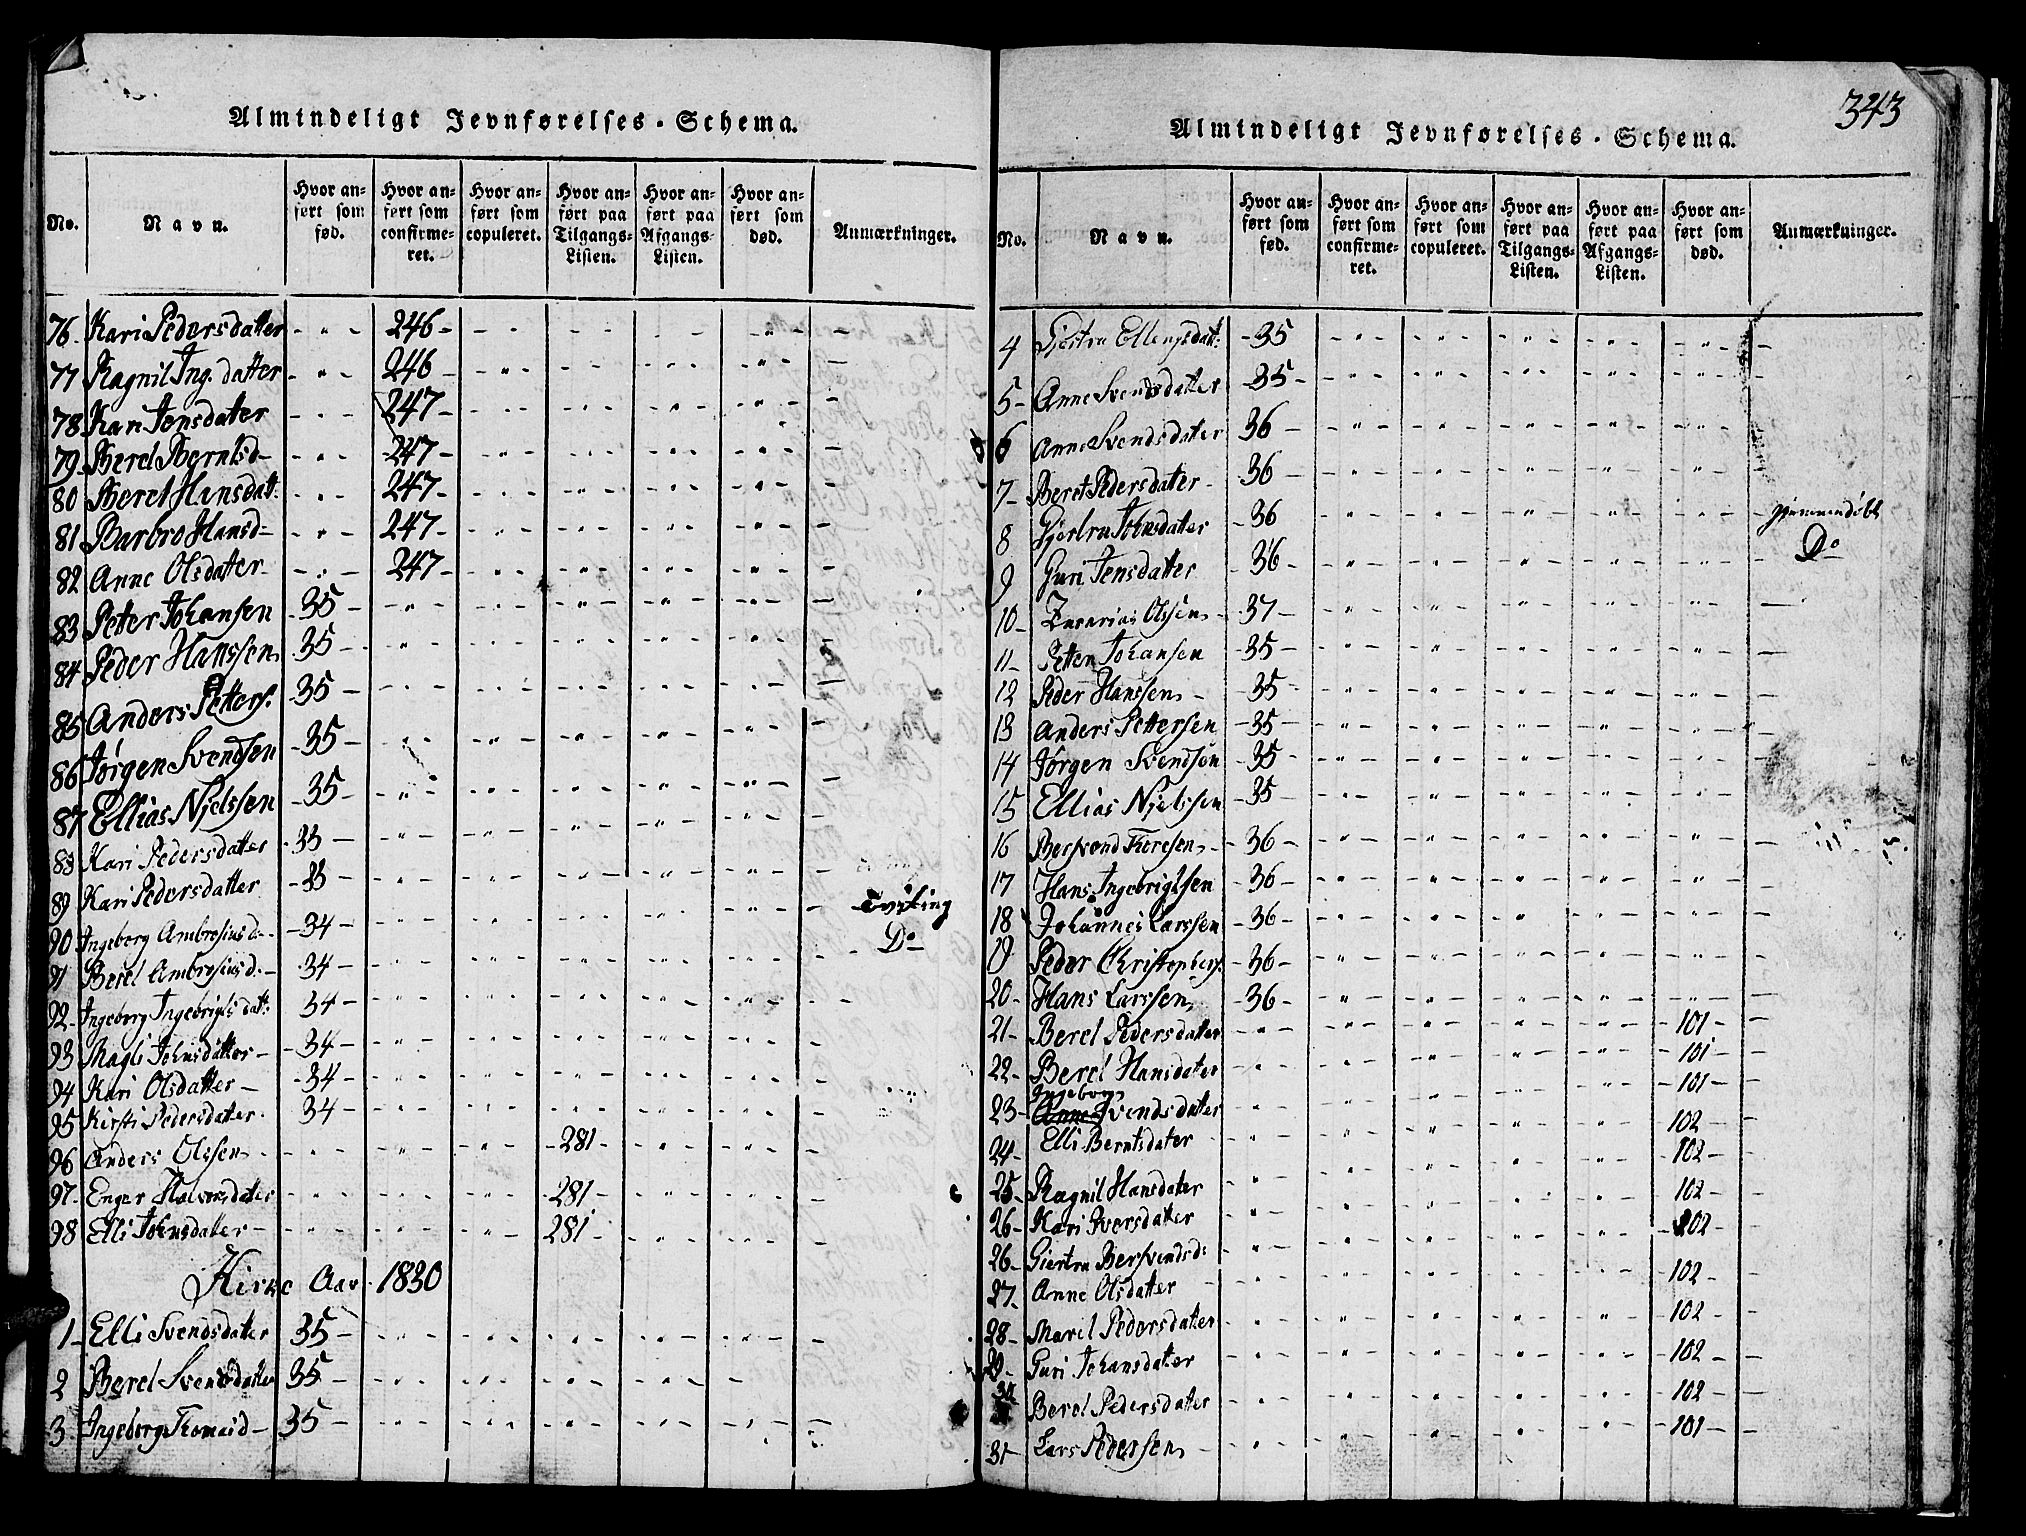 Almindeligt Jevnførelses-Schema.
No. Navn. Hvor anført som født. Hvor anført som confirmeret. Hvor anført som copuleret. Hvor anført paa Tilgangs-Listen. Hvor anført paa Afgangs-Listen. Hvor anført som død. Anmærkninger.
76 Kari Pedersdatter - " - 246 -
77 Ragnil Ing. datter - " - 246 -
78 Kari Jensdatter - " - 247 -
79 Beret Berntsd - " - 247 -
80 Beret Hansdatt: - " - 247 -
81 Barbro Hansd - " - 247 -
82 Anne Olsdatter - " - 247 -
83 Petter Johansen - 35 -
84 Peder Hanssen 35 -
85 Anders Petters. 35 -
86 Jørgen Svendsen - 35 -
87 Ellias Njelssen - 35 -
88 Kari Pedersdatter - 33 -
89 Kari Pedersdatter - 33 -
90 Ingeborg Ambrosiusd. - 34 - Tvilling
91 Beret Ambrosiusd. - 34 - Do
92 Ingeborg Ingebrigtsdatt: - 34 -
93 Magli Johnsdatter - 34 -
94 Kari Olsdatter - 34 -
95 Kirsti Pedersdatter - 34 -
96 Anders Olssen - 281 -
97 Enger Halvorsdatter - 281 -
98 Elli Johnsdatter - 281 -
Kirke Aar 1830
1 Elli Svendsdatter 35 -
2 Beret Svendsdatter 35 -
3 Ingeborg Tomasd - 35 -
343
Almindeligt Jevnførelses-Schema.
No. Navn. Hvor anført som fød. Hvor anført som confirmeret. Hvor anført som copuleret. Hvor anført paa Tilgangs-Listen. Hvor anført paa Afgangs-Listen. Hvor anført som død. Anmærkninger.
4 Gjertru Ellingsdatt: - 35
5 Anne Svendsdatter - 35 -
6 Anne Svendsdatter 36 -
7 Beret Pedersdatter - 36
8 Gjertru Johnsdatter - 36 hjemmedøbt
9 Guri Jensdatter - 36 - Do
10 Zacarias Olssen - 37 -
11 Petter Johansen - 35 -
12 Peder Hanssen - 35 -
13 Anders Pettersen - 35 -
14 Jørgen Svendsen - 35 -
15 Ellias Njelssen - 35 -
16 Bersvend Toresen - 36 -
17 Hans Ingebrigtsen - 36 -
18 Johannes Larssen - 36 -
19 Peder Christophers. - 36 -
20 Hans Larssen - 36 -
21 Beret Pedersdatter - 101 -
22 Beret Hansdatter - 101 -
Ingeborg
23 Anne Svendsdatter - 101 -
24 Elli Berntsdatter - 102 -
25 Ragnil Hansdatter - 102 -
26 Kari Iversdatter - 102 -
26 Giertru Bersvendsd: - 102 -
27 Anne Olsdatter - 102 -
28 Marit Pedersdatter - 102 -
29 Guri Johansdatter - 102 -
30 Beret Pedersdatter - 102 -
31 Lars Pedersen - 101 -